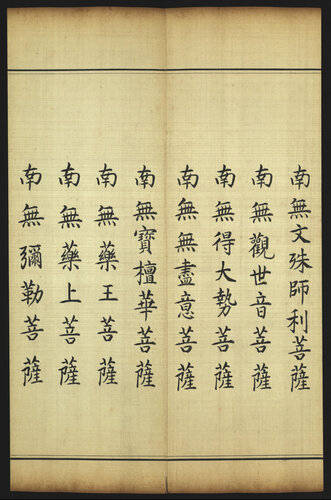 南無文殊師利菩薩
南無觀世音菩薩
南無得大勢菩薩
南無無盡意菩薩
南無寶檀華菩薩
南無藥王菩薩
南無藥上菩薩
南無彌勒菩薩